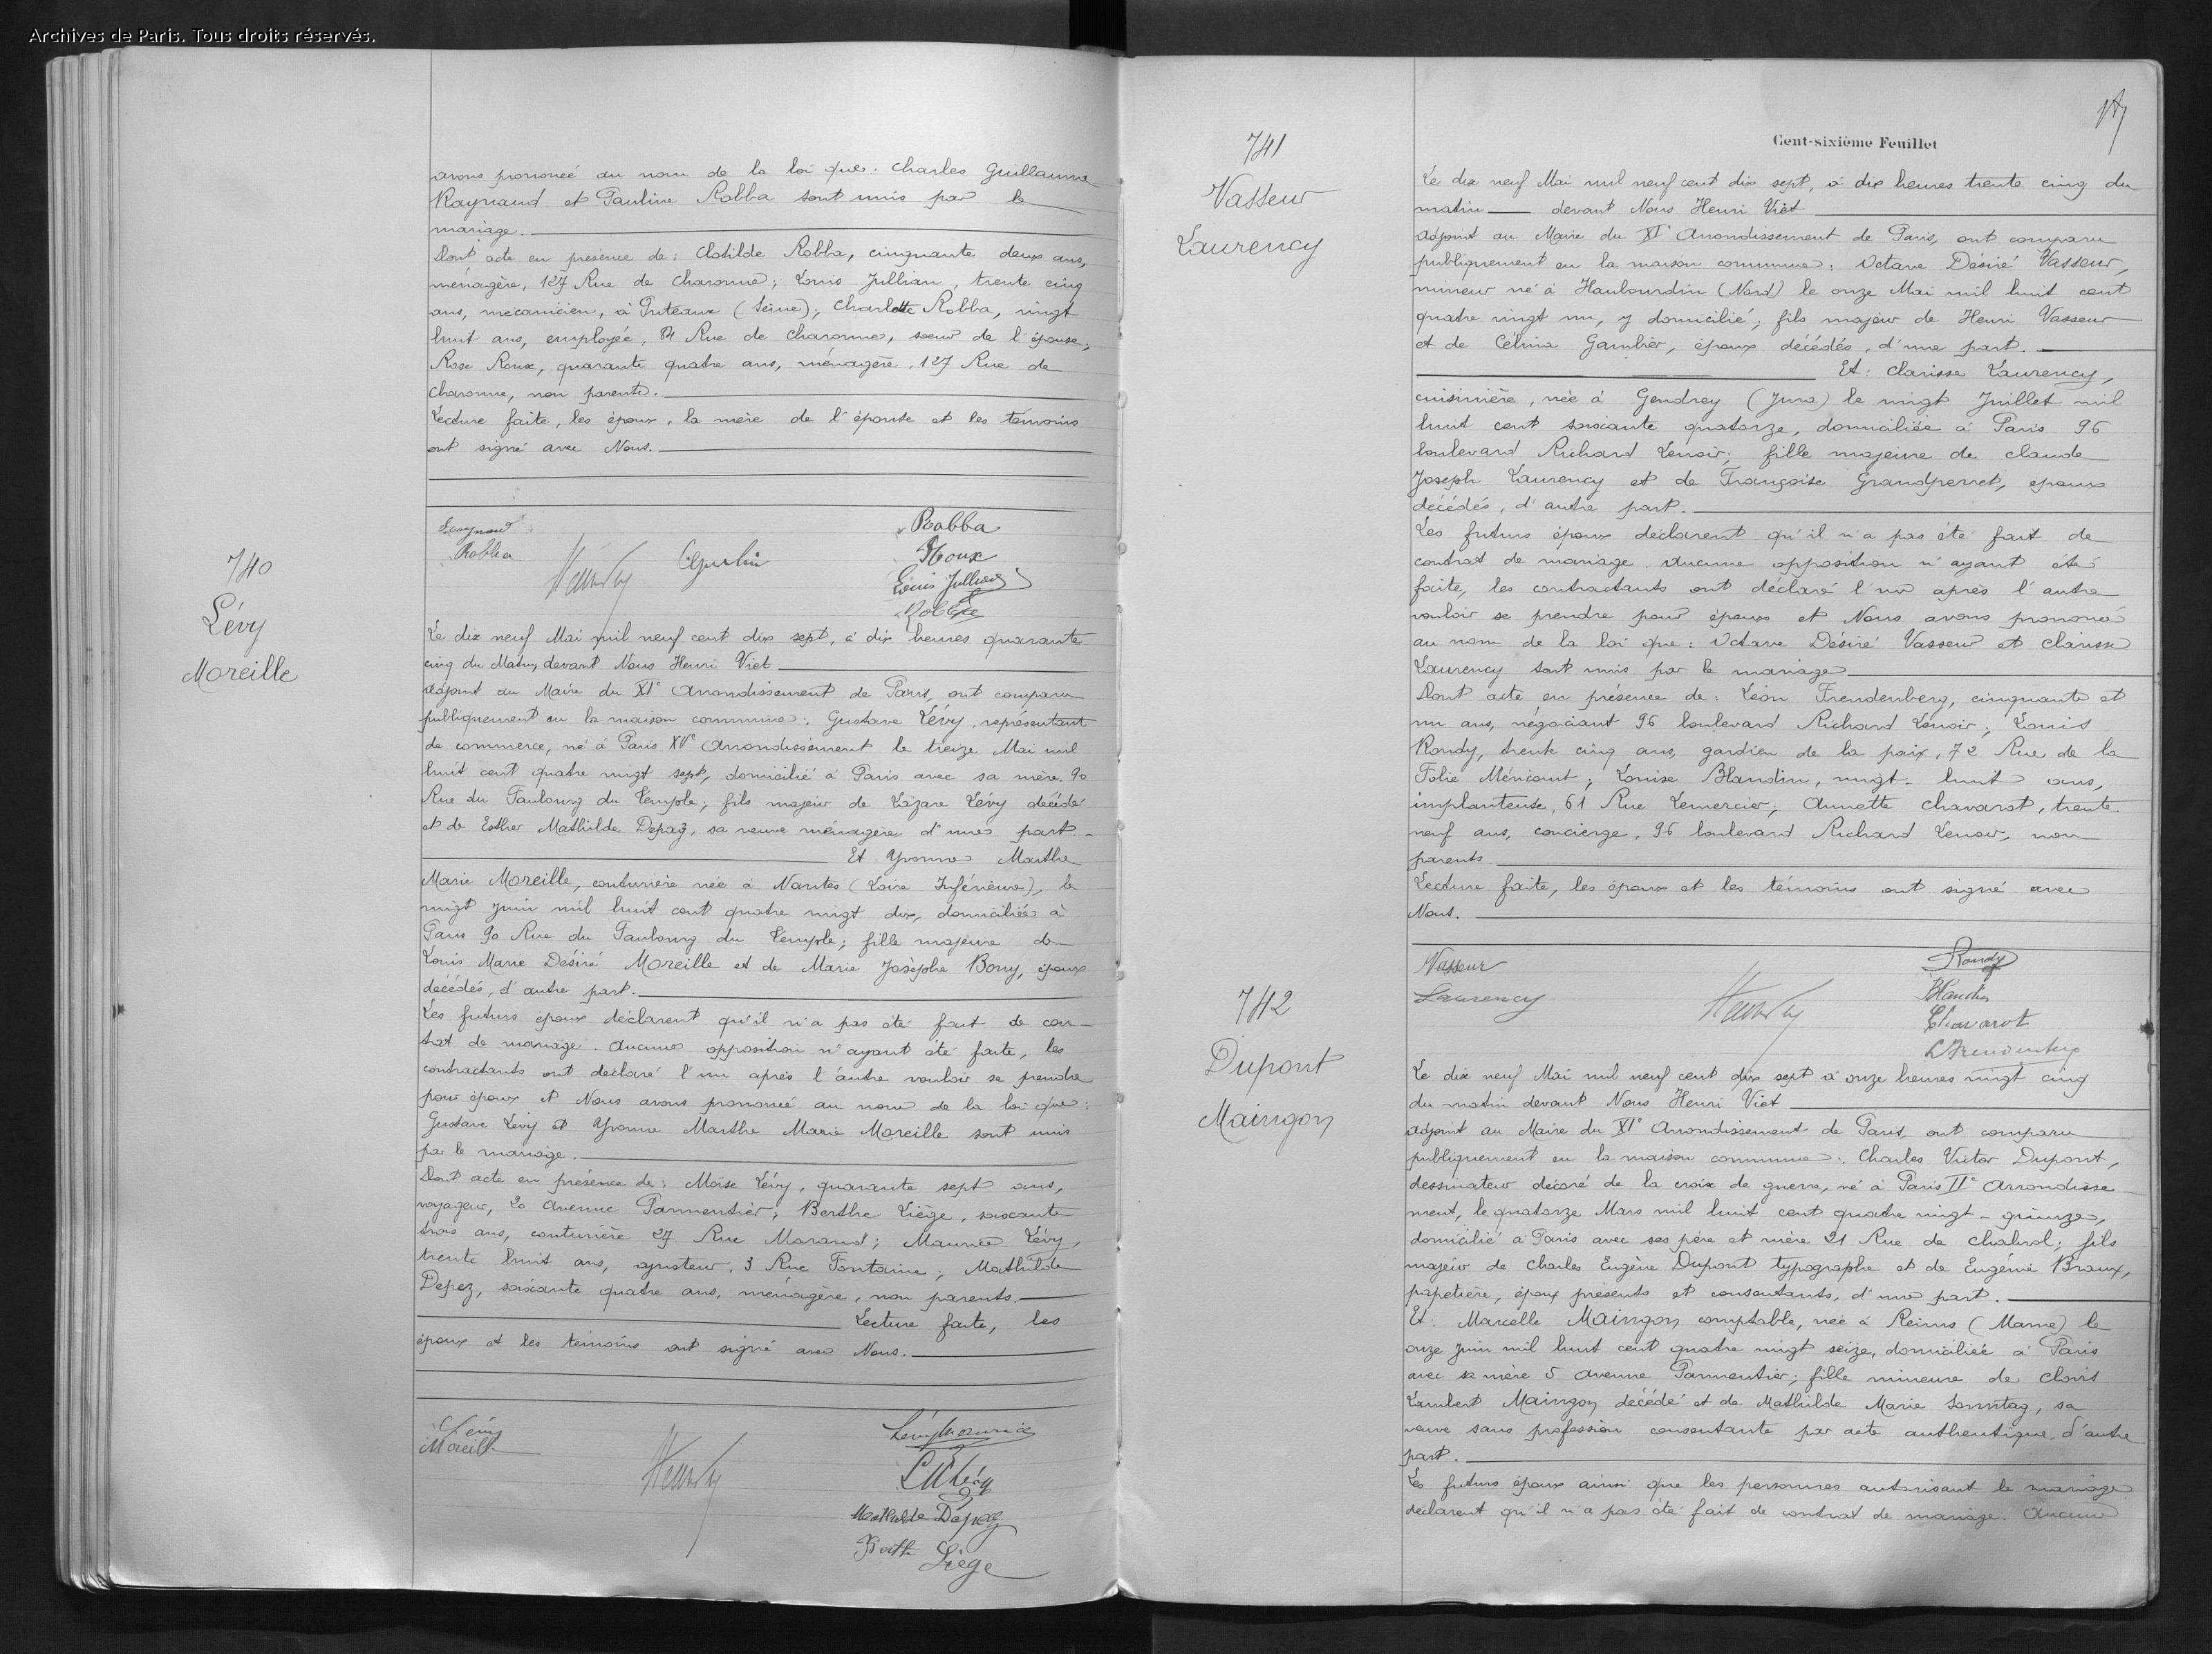 Archives de Paris. Tous droits réservés.
avons prononcé au nom de la loi que : Charles Guillaume
Raynaud et Pauline Robba sont unis par le
mariage.
Dont acte en présence de : Clotilde Robba, cinquante deux ans,
ménagère, 127 Rue de Charonne ; Louis Jullian, trente cinq
ans, mécanicien, à Puteaux (Seine) ; Charlotte Robba, vingt
huit ans, employée, 84 Rue de Charonne, soeur de l'épouse ;
Rose Roux, quarante quatre ans, ménagère, 127 Rue de
Charonne, non parente.
Lecture faite, les époux, la mère de l'épouse et les témoins
ont signé avec Nous.
Raynaud
Robba
Robba
Roux
Louis Jullian
Robba
740
Lévy
Moreille
Le dix neuf Mai mil neuf cent dix sept, à dix heures quarante
cinq du Matin, devant Nous Henri Viet
adjoint au Maire du XIe Arrondissement de Paris, ont comparu
publiquement en la maison commune : Gustave Lévy, représentant
de commerce, né à Paris XVe Arrondissement le treize Mai mil
huit cent quatre vingt sept, domicilié à Paris avec sa mère 90
Rue du Faubourg du Temple ; fils majeur de Lazare Lévy décédé
et de Esther Mathilde Depaz, sa veuve ménagère, d'une part.
Et Yvonne Marthe
Marie Moreille, couturière née à Nantes (Loire Inférieure), le
vingt Juin mil huit cent quatre vingt dix, domiciliée à
Paris 90 Rue du Faubourg du Temple ; fille majeure de
Louis Marie Désiré Moreille et de Marie Josèphe Bony, époux
décédés, d'autre part.
Les futurs époux déclarent qu'il n'a pas été fait de con-
trat de mariage. Aucune opposition n'ayant été faite, les
contractants ont déclaré l'un après l'autre vouloir se prendre
pour époux et Nous avons prononcé au nom de la loi que :
Gustave Lévy et Yvonne Marthe Marie Moreille sont unis
par le mariage.
Dont acte en présence de : Moïse Lévy, quarante sept ans,
voyageur, 20 Avenue Parmentier ; Berthe Liège, soixante
trois ans, couturière 27 Rue Morand ; Maurice Lévy,
trente huit ans, ajusteur, 3 Rue Fontaine ; Mathilde
Depez, soixante quatre ans, ménagère, non parents.
Lecture faite, les
époux et les témoins ont signé avec Nous.
G Lévy
Moreille
Lévy Maurice
Mathilde Depaz
Berthe Liège
Cent-sixième Feuillet
741
Vasseur
Laurency
Le dix neuf Mai mil neuf cent dix sept, à dix heures trente cinq du
matin devant Nous Henri Viet
adjoint au Maire du XIe Arrondissement de Paris, ont comparu
publiquement en la maison commune : Octave Désiré Vasseur,
mineur né à Haubourdin (Nord) le onze Mai mil huit cent
quatre vingt un, y domicilié ; fils majeur de Henri Vasseur
et de Célina Gambier, époux décédés, d'une part.
Et : Clarisse Laurency,
cuisinière, née à Gendrey (Jura) le vingt Juillet mil
huit cent soixante quatorze, domiciliée à Paris 96
boulevard Richard Lenoir ; fille majeure de Claude
Joseph Laurency et de Françoise Grandperret, époux
décédés, d'autre part.
Les futurs époux déclarent qu'il n'a pas été fait de
contrat de mariage. Aucune opposition n'ayant été
faite, les contractants ont déclaré l'un après l'autre
vouloir se prendre pour époux et Nous avons prononcé
au nom de la loi que : Octave Désiré Vasseur et Clarisse
Laurency sont unis par le mariage
Dont acte en présence de : Léon Freudenberg, cinquante et
un ans, négociant 96 boulevard Richard Lenoir ; Louis
Rondy, trente cinq ans, gardien de la paix, 72 Rue de la
Folie Méricourt ; Louise Blandin, vingt-huit ans,
implanteuse, 61 Rue Lemercier ; Annette Chavarot, trente
neuf ans, concierge, 96 boulevard Richard Lenoir, non
parents
Lecture faite, les époux et les témoins ont signé avec
Nous.
Vasseur
Laurency
Rondy
Blandin
Chavarot
L Freudenberg
742
Dupont
Maingon
Le dix neuf Mai mil neuf cent dix sept à onze heures vingt cinq
du matin devant Nous Henri Viet
adjoint au Maire du XIe Arrondissement de Paris, ont comparu
publiquement en la maison commune : Charles Victor Dupont,
dessinateur décoré de la croix de guerre, né à Paris IIe Arrondisse
ment, le quatorze Mars mil huit cent quatre vingt-quinze,
domicilié à Paris avec ses père et mère 21 Rue de Chabrol ; fils
majeur de Charles Eugène Dupont typographe et de Eugénie Braux,
papetière, époux présents et consentants, d'une part.
Et : Marcelle Maingon comptable, née à Reims (Marne) le
onze Juin mil huit cent quatre vingt seize, domiciliée à Paris
avec sa mère 5 Avenue Parmentier ; fille mineure de Clovis
Lambert Maingon décédé et de Mathilde Marie Sonntag, sa
veuve sans profession consentante par acte authentique d'autre
part.
Les futurs époux ainsi que les personnes autorisant le mariage
déclarent qu'il n'a pas été fait de contrat de mariage. Aucune